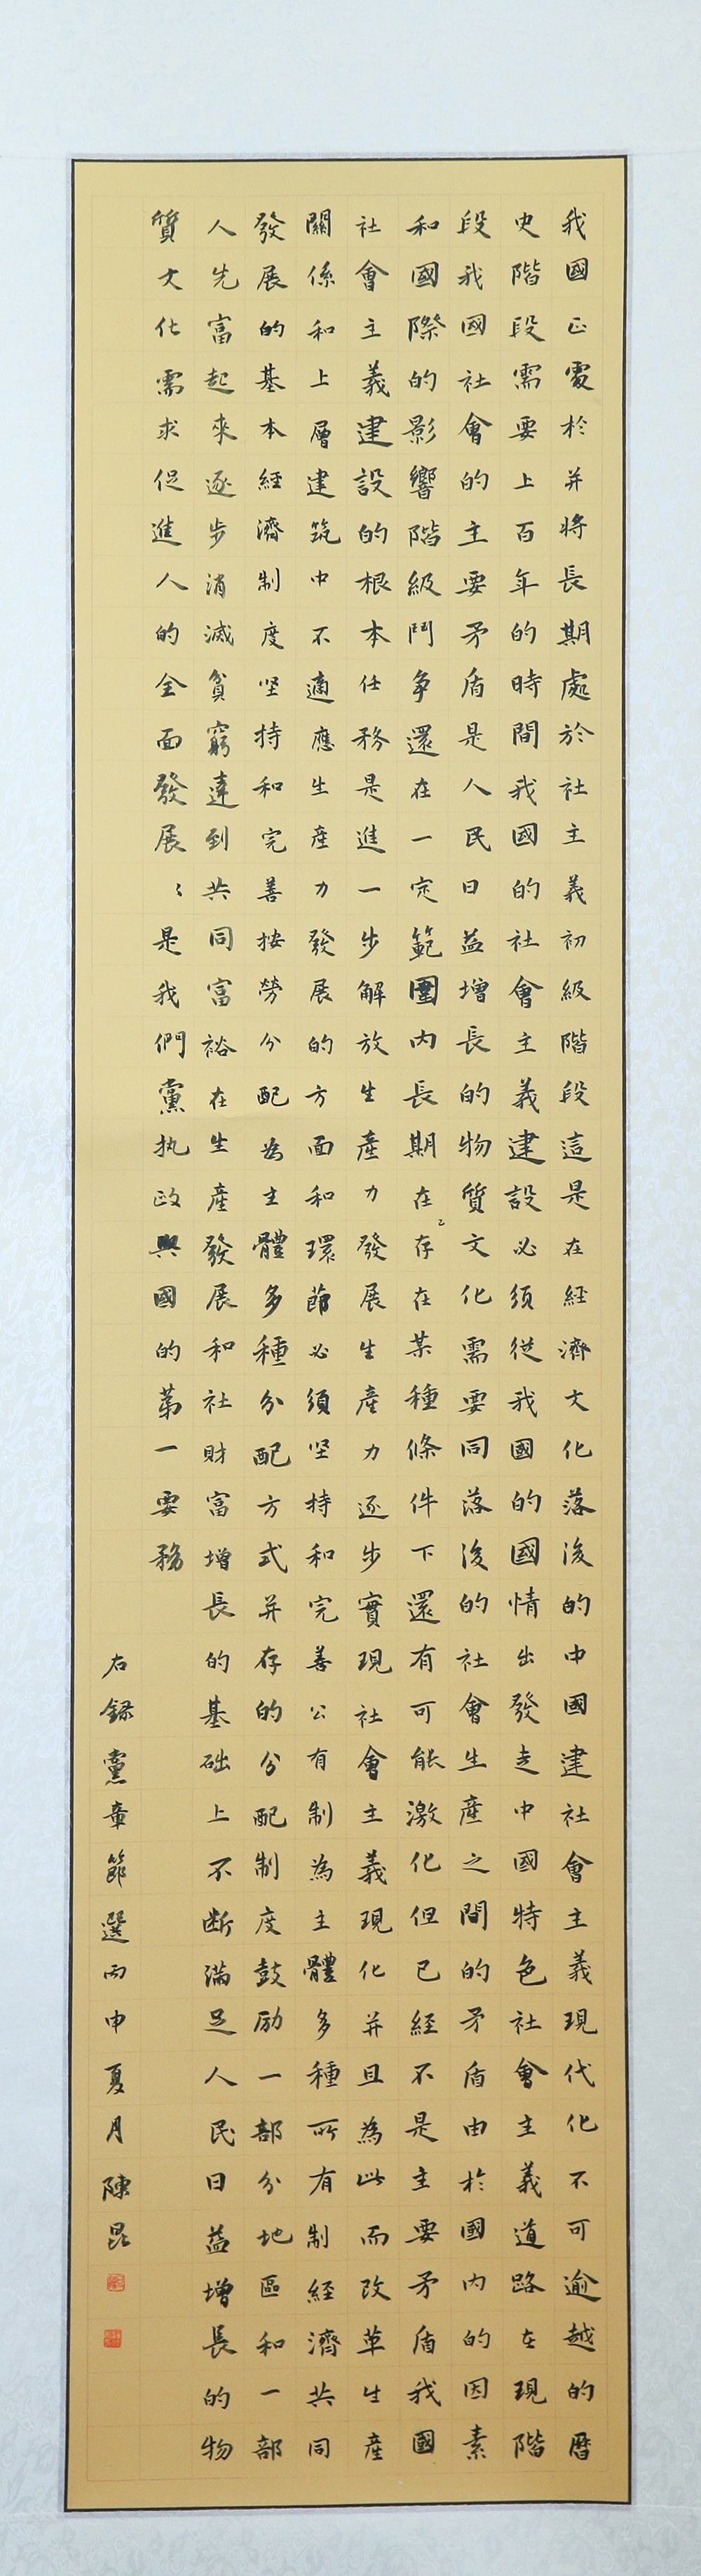 我國正處於并將長期處於社主義初級階段這是在經濟文化落後的中國建社會主義現代化不可逾越的曆
史階段需要上百年的時間我國的社會主義建設必須從我國的國情出發走中國特色社會主義道路在現階
段我國社會的主要矛盾是人民日益增長的物質文化需要同落後的社會生產之間的矛盾由於國内的因素
和國際的影響階級鬥爭還在一定範圍内長期在存在某種條件下還有可能激化但已經不是主要矛盾我國
社會主義建設的根本任務是進一步解放生產力發展生產力逐步實現社會主義現化并且為此而改革生產
關係和上層建筑中不適應生產力發展的方面和環節必須坚持和完善公有制為主體多種所有制經濟共同
發展的基本經濟制度坚持和完善按勞分配為主體多種分配方式并存的分配制度鼓励一部分地區和一部
人先富起來逐步消滅貧窮達到共同富裕在生產發展和社財富增長的基础上不断滿足人民日益增長的物
質文化需求促進人的全面發展〻是我們黨执政興國的第一要務
右録黨章節選丙申夏月陳昆